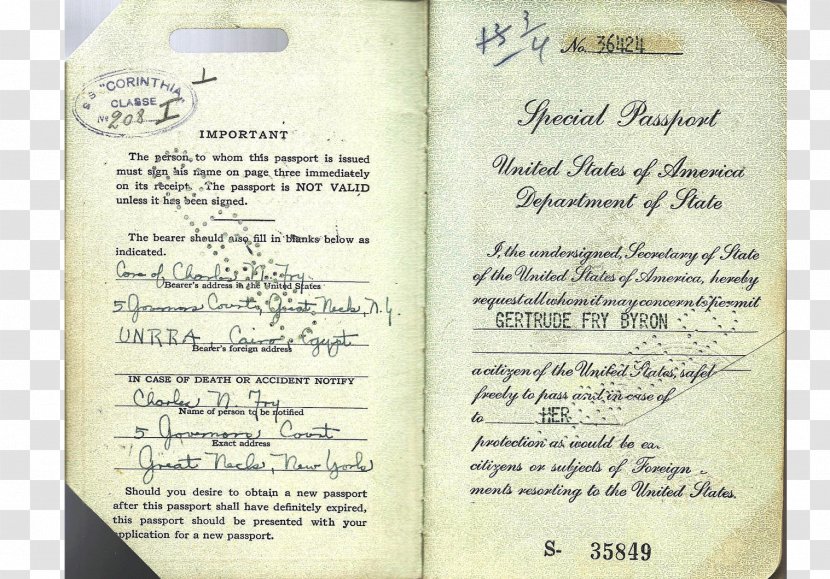 S. S. "CORINTHIA"
CLASSE I
No 208
IMPORTANT
The person to whom this passport is issued
must sign his name on page three immediately
on its receipt. The passport is NOT VALID
unless it has been signed.
The bearer should also fill in blanks below as
indicated.
Care of Charles N. Fry
Bearer's address in the United States
5 Governors Court, Great Neck, N.Y.
UNRRA, Cairo, Egypt
Bearer's foreign address
IN CASE OF DEATH OR ACCIDENT NOTIFY
Charles N. Fry
Name of person to be notified
5 Governors Court
Exact address
Great Neck, New York
Should you desire to obtain a new passport
after this passport shall have definitely expired,
this passport should be presented with your
application for a new passport.
No. 36424
Special Passport
United States of America
Department of State
I, the undersigned, Secretary of State
of the United States of America, hereby
request all whom it may concern to permit
GERTRUDE FRY BYRON
a citizen of the United States, safel
freely to pass and in case of
to HER
protection as would be ex
citizens or subjects of Foreign
ments resorting to the United States.
S- 35849